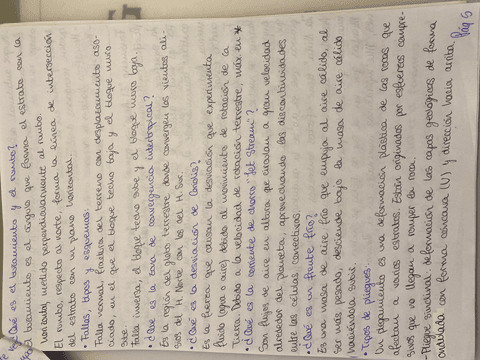 ¿Qué es el buzamiento y el rumbo?
El buzamiento es el ángulo que forma el estrato con la
horizontal, medido perpendicularmente al rumbo.
El rumbo, respecto al norte, forma la línea de intersección
del estrato con un plano horizontal.
• Fallas, tipos y esquemas.
Falla normal: fractura de terreno con desplazamiento aso-
ciado, en el que el bloque techo baja y el bloque muro
sube.
Falla inversa, el bloque techo sube y el bloque muro baja.
• ¿Qué es la zona de convergencia intertropical?
Es la región del globo terrestre donde convergen los vientos ali-
sios del H. Norte con los del H. Sur.
• ¿Qué es la desviación de Coriolis?
Es la fuerza que causa la desviación que experimenta
fluido (agua o aire) debido al movimiento de rotación de la
Tierra. Debido a la velocidad de rotación terrestre, máx en
• ¿Qué es la corriente de chorro "Jet Stream"?
Son flujos de aire en altura que circulan a gran velocidad
alrededor del planeta, aprovechando las discontinuidades
entre las células convectivas.
• ¿Qué es un frente frío?
Es una masa de aire frío que empuja al aire cálido, al
ser más pesado, desciende bajo la masa de aire cálido
haciéndola subir.
Tipos de pliegues:
Un plegamiento es una deformación plástica de las rocas que
afectan a varios estratos. Están originados por esfuerzos compre-
sivos que no llegan a romper la roca.
Pliegue sinclinal: deformación de las capas geológicas de forma
ondulada con forma cóncava (U) y dirección hacia arriba. Pág 5